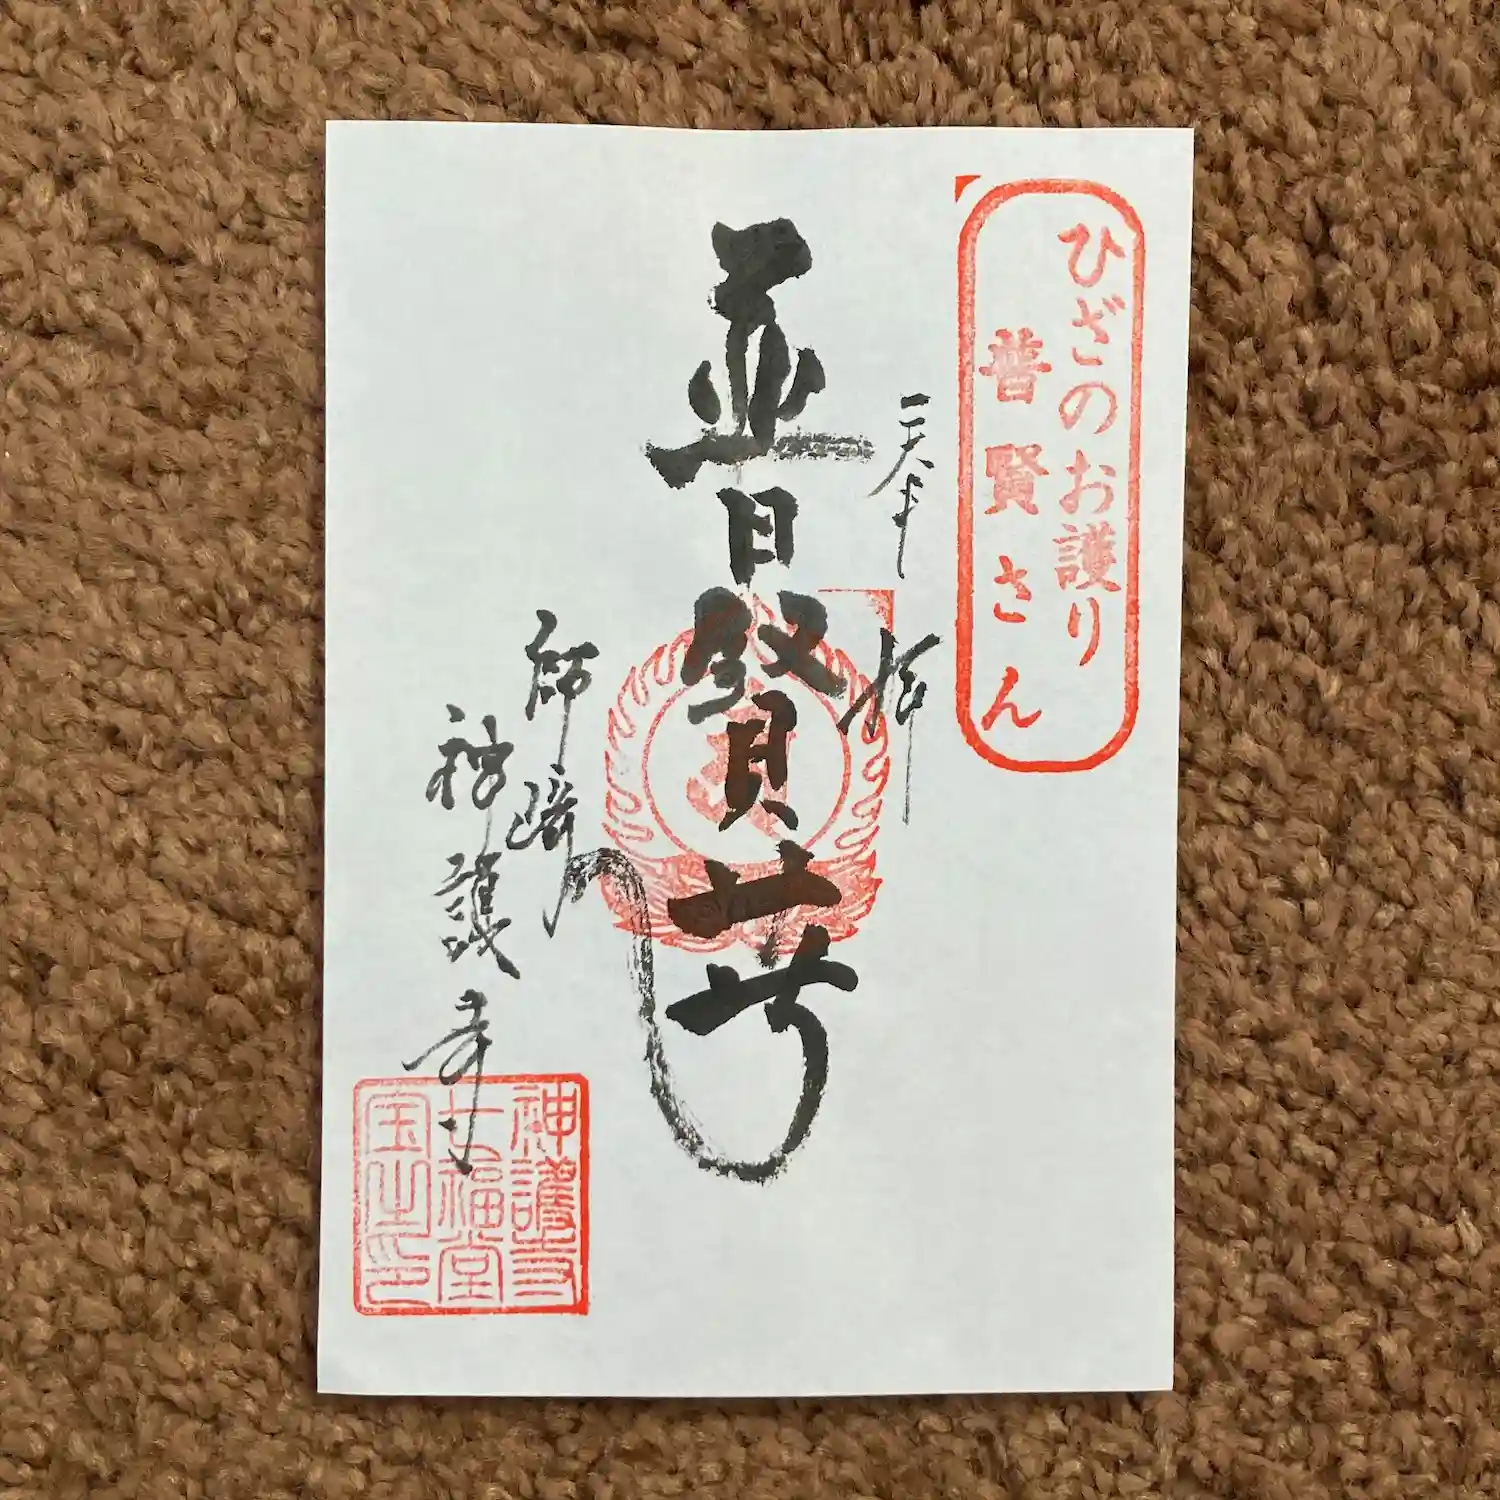 ひざのお護り
普賢さん
奉拝
普賢芽
師崎
神護寺
神護寺
七福堂
宝之印